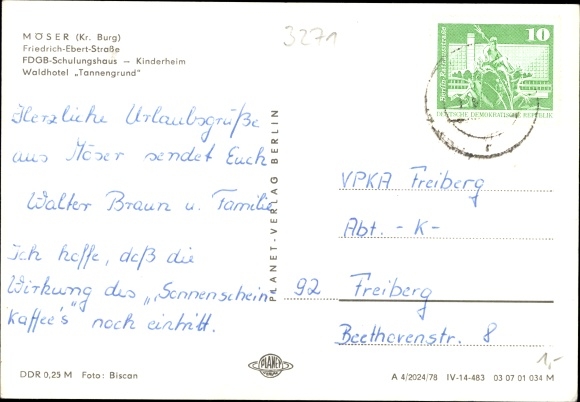 MÖSER (Kr. Burg)
Friedrich-Ebert-Straße
FDGB-Schulungshaus — Kinderheim
Waldhotel „Tannengrund"
3271
10
Berlin-Rathausstraße
DEUTSCHE DEMOKRATISCHE REPUBLIK
Herzliche Urlaubsgrüße
aus Möser sendet Euch
Walter Braun u. Familie
Ich hoffe, daß die
Wirkung des „Sonnenschein
Kaffee's" noch eintritt.
PLANET-VERLAG BERLIN
VPKA Freiberg
Abt. - K -
92 Freiberg
Beethovenstr. 8
1,-
DDR 0,25 M Foto: Biscan
PLANET
A 4/2024/78 IV-14-483 03 07 01 034 M